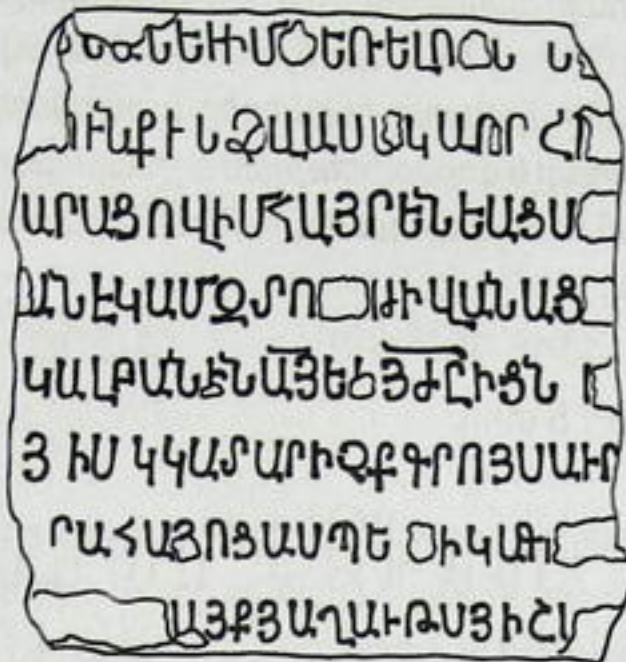 ՆԵԻՄ ԵՌԵԼՈ Ն Ն
ԻՆՔԻՆ ՁԱԱՍ ԿԱՌՐ ՀՈ
ԱՐԱՑՈՎԻՄՀԱՅՐԵՆԵԱՑՍ
ԱՆԷԿԱՄՋՏՈ ԹԻՎԱՆԱՑ
ԿԱԼԲԱՆԷՆԱՅԵՒՅԺԸԻՑՆ
Յ ԻՍ ԿԿԱՏԱՐԻՉՔԳՐՈՅՍԱՒՐ
ՐԱՀԱՅՈՑԱՍՊԵ ԻԿԱ
ԱՅՔՅԱՂԱՒԹՍՅԻՇ